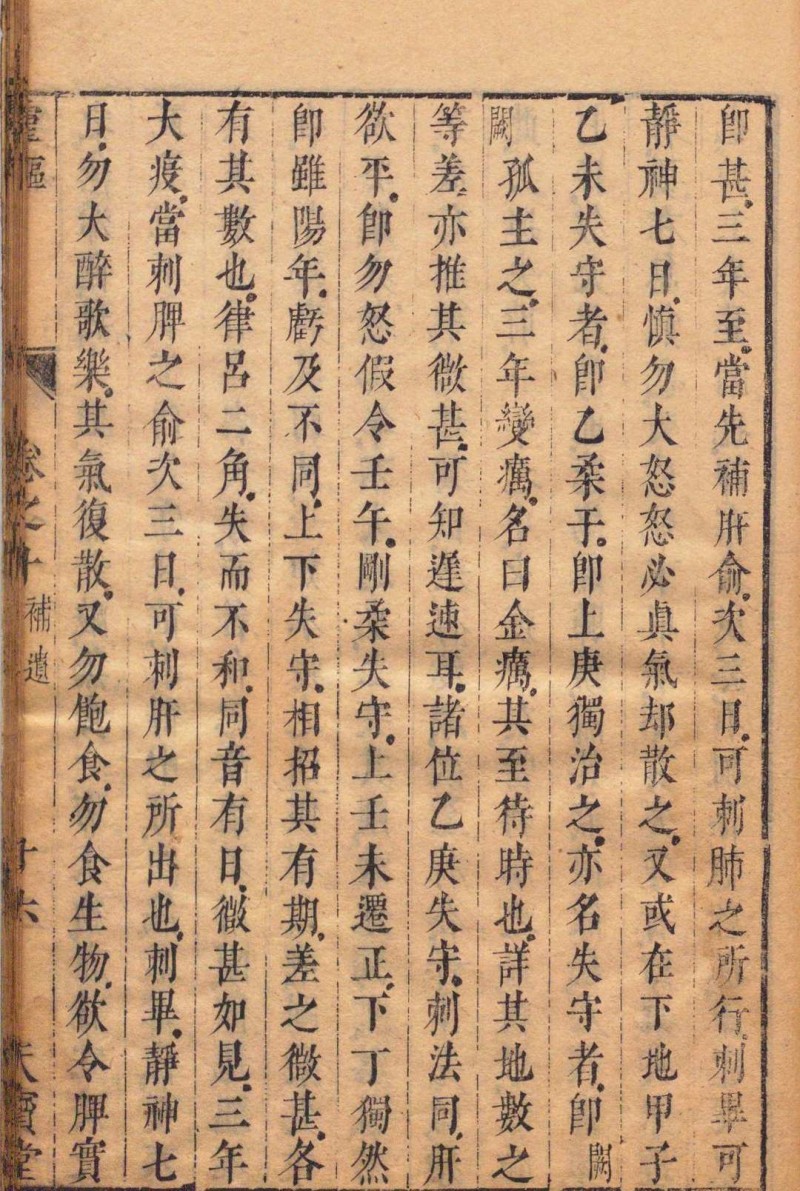 卽甚三年至當先補肝俞次三日可刺肺之所行刺畢可
靜神七日慎勿大怒怒必眞氣却散之又或在下地甲子
乙未失守者卽乙柔干卽上庚獨治之亦名失守者卽闕
闕孤主之三年變癘名曰金癘其至待時也詳其地數之
等差亦推其微甚可知遲速耳諸位乙庚失守刺法同肝
欲平卽勿怒假令壬午剛柔失守上壬未遷正下丁獨然
卽雖陽年虧及不同上下失守相招其有期差之微甚各
有其數也律呂二角失而不和同音有日微甚如見三年
大疫當刺脾之俞次三日可刺肝之所出也刺畢靜神七
日勿大醉歌樂其氣復散又勿飽食勿食生物欲令脾實
卷之十 補遺